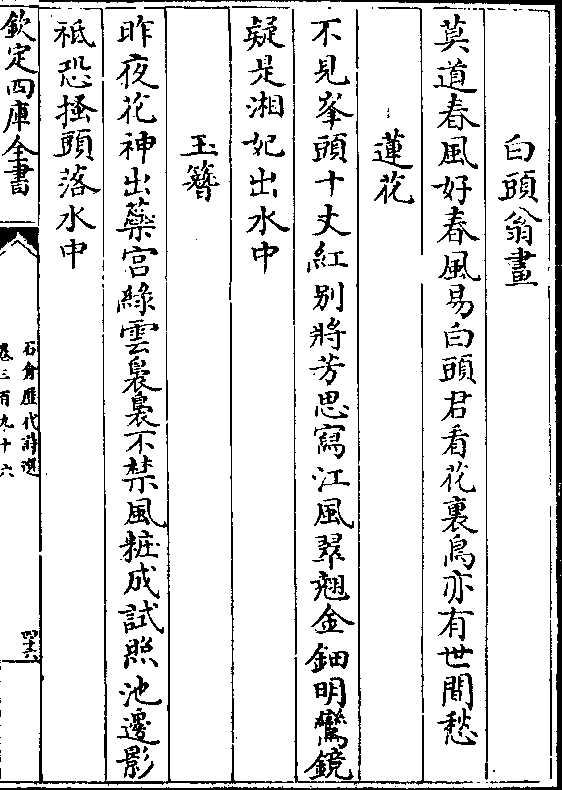 白頭翁畫
莫道春風好春風易白頭君看花裏鳥亦有世間愁
蓮花
不見峯頭十丈紅别將芳思寫江風翠翹金鈿明鸞鏡
疑是湘妃出水中
玉簪
昨夜花神出蘂宫綠雲裊裊不禁風粧成試照池邊影
祗恐搔頭落水中
欽定四庫全書
石倉歷代詩選
卷三百九十六